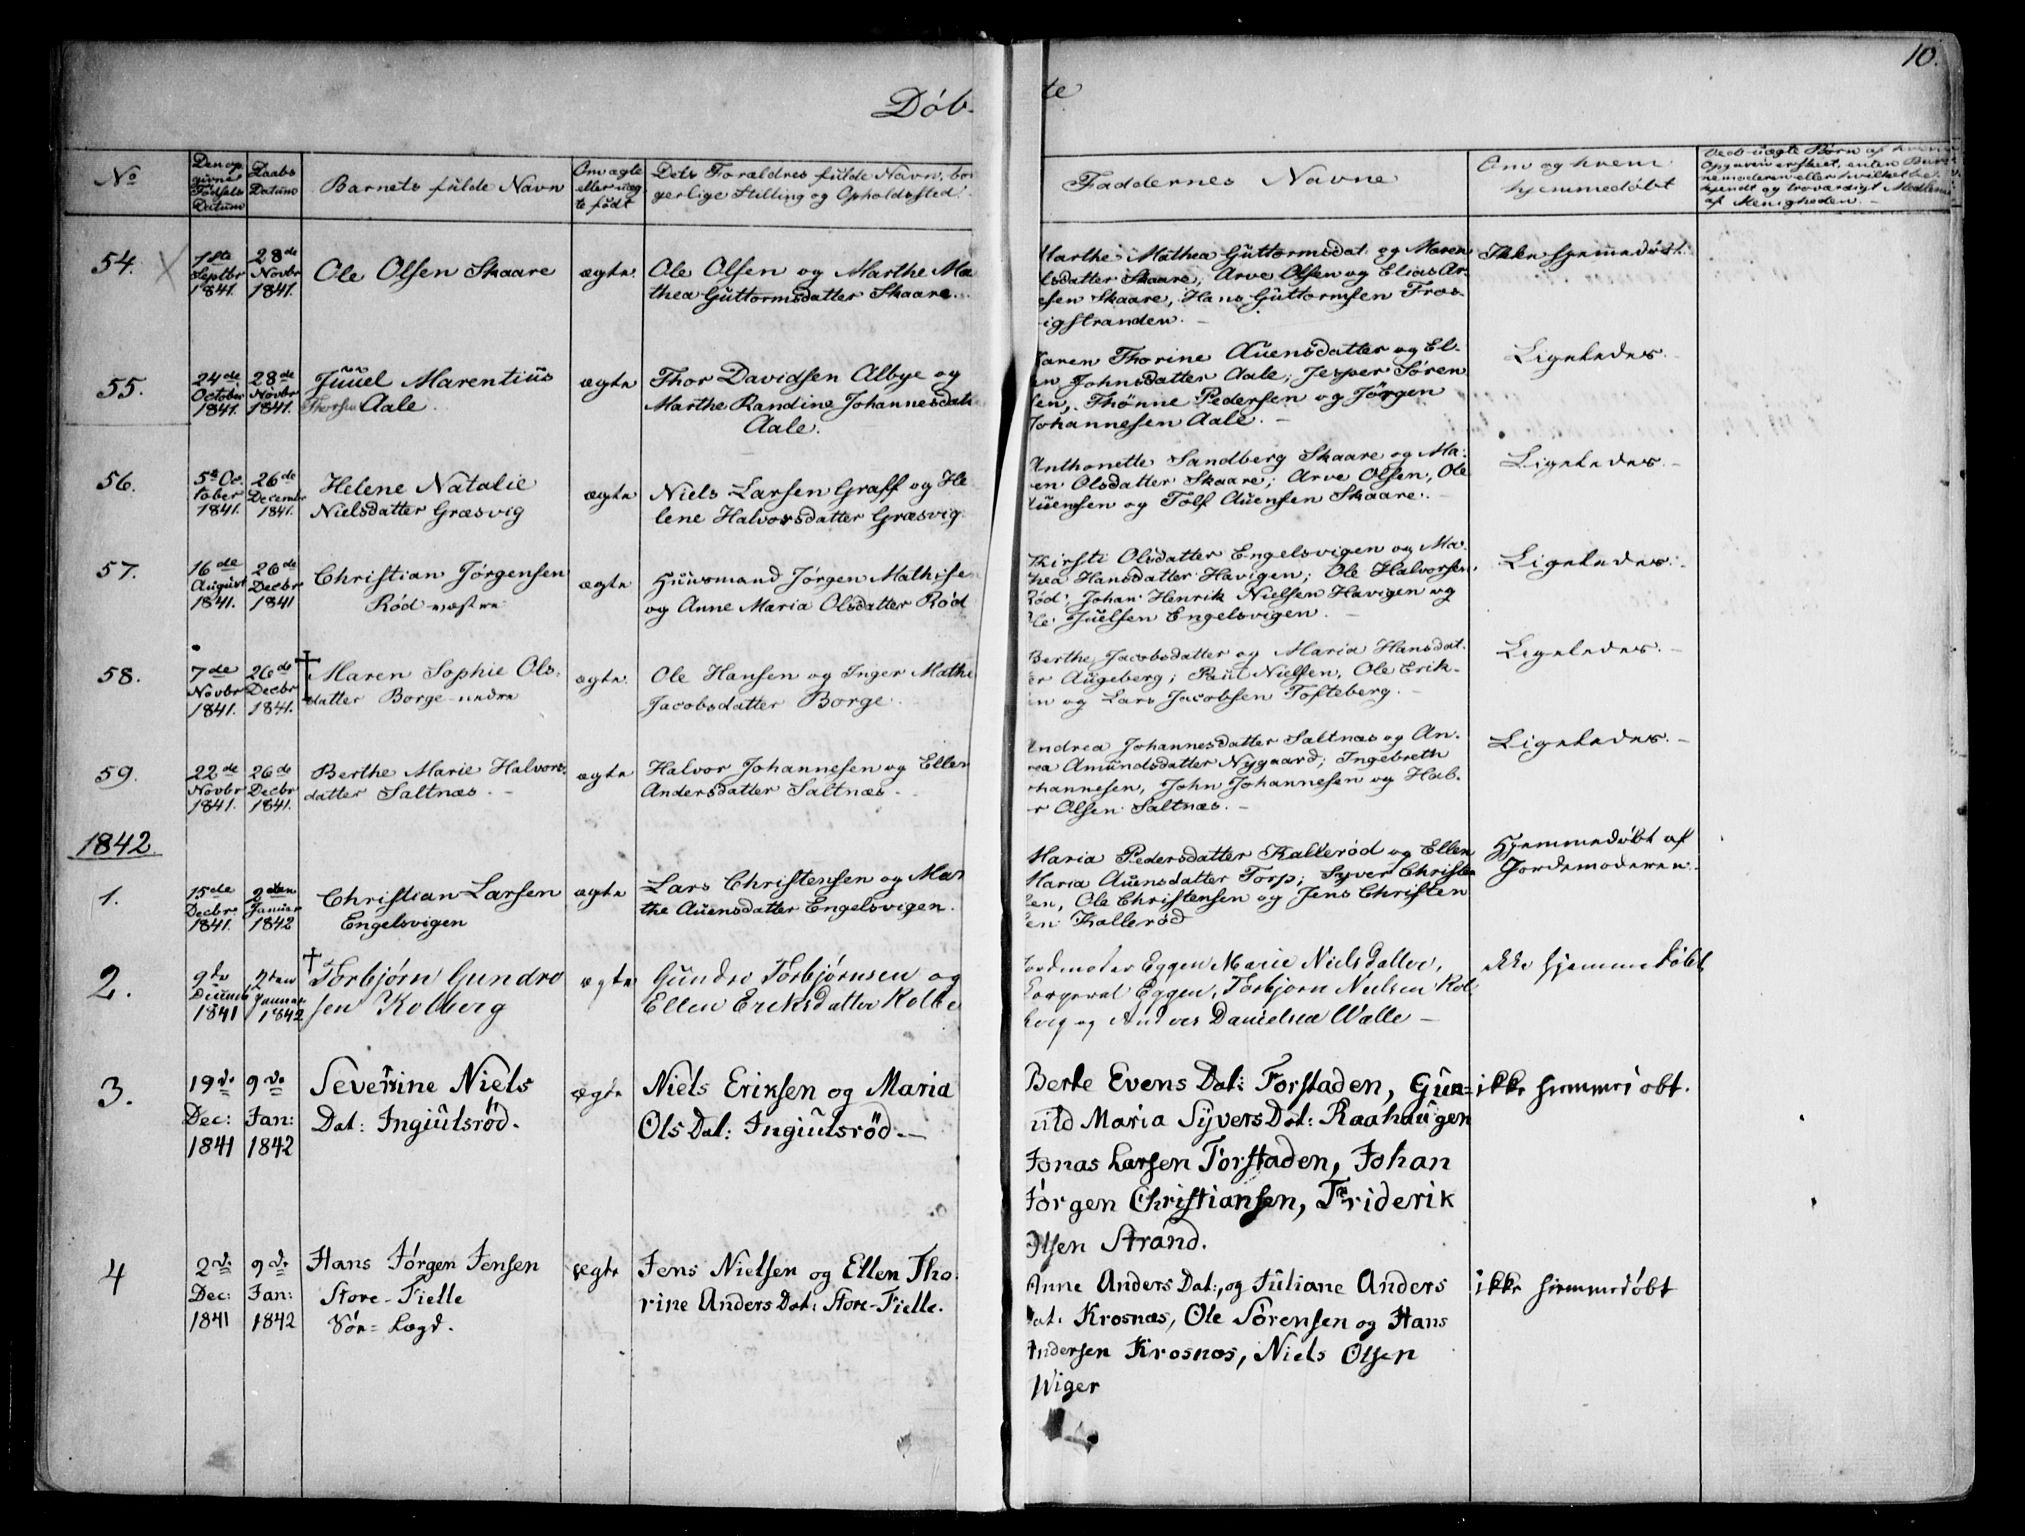 10.
Døb-
te
No
Den op
givne
Fødsels
Datum
Daabs
Datum
Barnets fulde Navn
Om ægte
eller uæg
te født
Dets Forældres fulde Navn, bor
gerlige Stilling og Opholdssted.
Faddernes Navne
Om og hvem
hjemmedøbt
Ved uægte Børn af hvem
Opgaven er skeet, enten Bar
nemoderen eller hvilket be-
kjendt og troværdigt Medlem
af Menigheden.
54.
1ste
Septbr
1841.
28de
Novbr
1841.
Ole Olsen Skaare
ægte
Ole Olsen og Marthe Ma
thea Guttormsdatter Skaare.
Marthe Mathea Guttormsdat og Maren
lsdatter Skaare; Arve Olsen og Elias Ar-
esen Skaare, Hans Guttormsen Fros-
igstranden. -
Ikke hjemmedøbt.
55.
24de
October
1841.
28de
Novbr
1841.
Juuel Marentius
Thorsen Aale.
ægte
Thor Davidsen Albye og
Marthe Randine Johannesdatt
Aale.
Karen Thorine Auensdatter og El-
en Johnsdatter Aale; Jesper Søren
sen, Thønne Pedersen og Jørgen
Johannesen Aale. -
Ligeledes.
56.
5te Oc
tober
1841.
26de
Decembr
1841.
Helene Natalie
Nielsdatter Græsvig
ægte
Niels Larsen Graff og He
lene Halvorsdatter Græsvig
Anthonette Sandberg Skaare og Ma-
en Olsdatter Skaare; Arve Olsen, Ole
Auensen og Tolf Auensen Skaare. -
Ligeledes. -
57.
16de
August
1841.
26de
Decbr
1841
Christian Jørgensen
Rød næstre
ægte
Huusmand Jørgen Mathisen
og Anne Maria Olsdatter Rød
Kirsti Olsdatter Engelsvigen og Ma-
thea Hansdatter Havigen; Ole Halvorsen
Rød; Johan Henrik Nielsen Havigen og
Ole Juelsen Engelsvigen.
Ligeledes.
58.
7de
Novbr
1841.
26de
Decbr
1841.
Maren Sophie Ols-
datter Borge nedre
ægte.
Ole Hansen og Inger Mathe
Jacobsdatter Borge.
Berthe Jacobsdatter og Maria Hansdat-
er Augeberg; Paul Nielsen, Ole Erik-
en og Lars Jacobsen Tofteberg. -
Ligeledes. -
59.
22de
Novbr
1841.
26de
Decbr
1841.
Berthe Marie Halvors-
datter Saltnæs. -
ægte
Halvor Johannesen og Ellen
Andersdatter Saltnæs. -
Andrea Johannesdatter Saltnæs og An-
rea Amundsdatter Nygaard; Ingebreth
ohannesen, John Johannesen og Hal-
r Olsen Saltnæs. -
Ligeledes. -
1842.
1.
15de
Decbr.
1841.
2den
Januar
1842
Christian Larsen
Engelsvigen
ægte
Lars Christensen og Mar
the Auensdatter Engelsvigen.
Maria Pedersdatter Kallerød og Ellen
Maria Auensdatter Torp; Syver Christen
sen, Ole Christensen og Jens Christen
sen Kallerød
Hjemmedøbt af
Jordemoderen.
2.
9de
Decemb
1841
2den
Januar
1842
Torbjørn Gundro
sen Kolberg
ægte
Gundro Torbjørnsen og
Ellen Eriksdatter Kolbe
Jordemoder Eggen Marie Nielsdatter,
Eggen, Torbjørn Nielsen Kol
berg og Anders Danielsen Walle -
ikke hjemmedøbt
3.
19de
Dec:
1841
9de
Jan:
1842
Severine Niels
Dat: Ingiulsrød.
ægte
Niels Eriksen og Maria
Ols Dat: Ingiulsrød. -
Berte Evens Dat: Torstaden, Gun-
uld Maria Syvers Dat: Raahaugen
Jonas Larsen Torstaden, Johan
Jørgen Christiansen, Friderik
Olsen Strand.
ikke hiemmedøbt.
4
2de
Dec:
1841
9de
Jan:
1842
Hans Jørgen Jensen
Store-Fielle
Sør-Lægd.
ægte
Jens Nielsen og Ellen Tho-
rine Anders Dat: Store-Fielle.
Anne Anders Dat:, og Juliane Anders
Dat: Krosnæs, Ole Sørensen og Hans
Andersen Krosnæs, Niels Olsen
Wiger
ikke hiemmedøbt